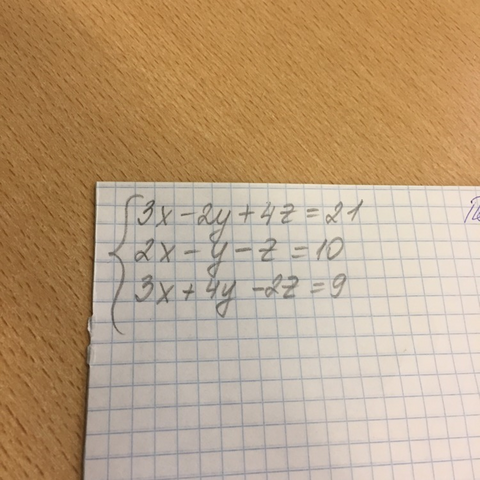 3x-2y+4z=21
2x-y-z=10
3x+4y-2z=9